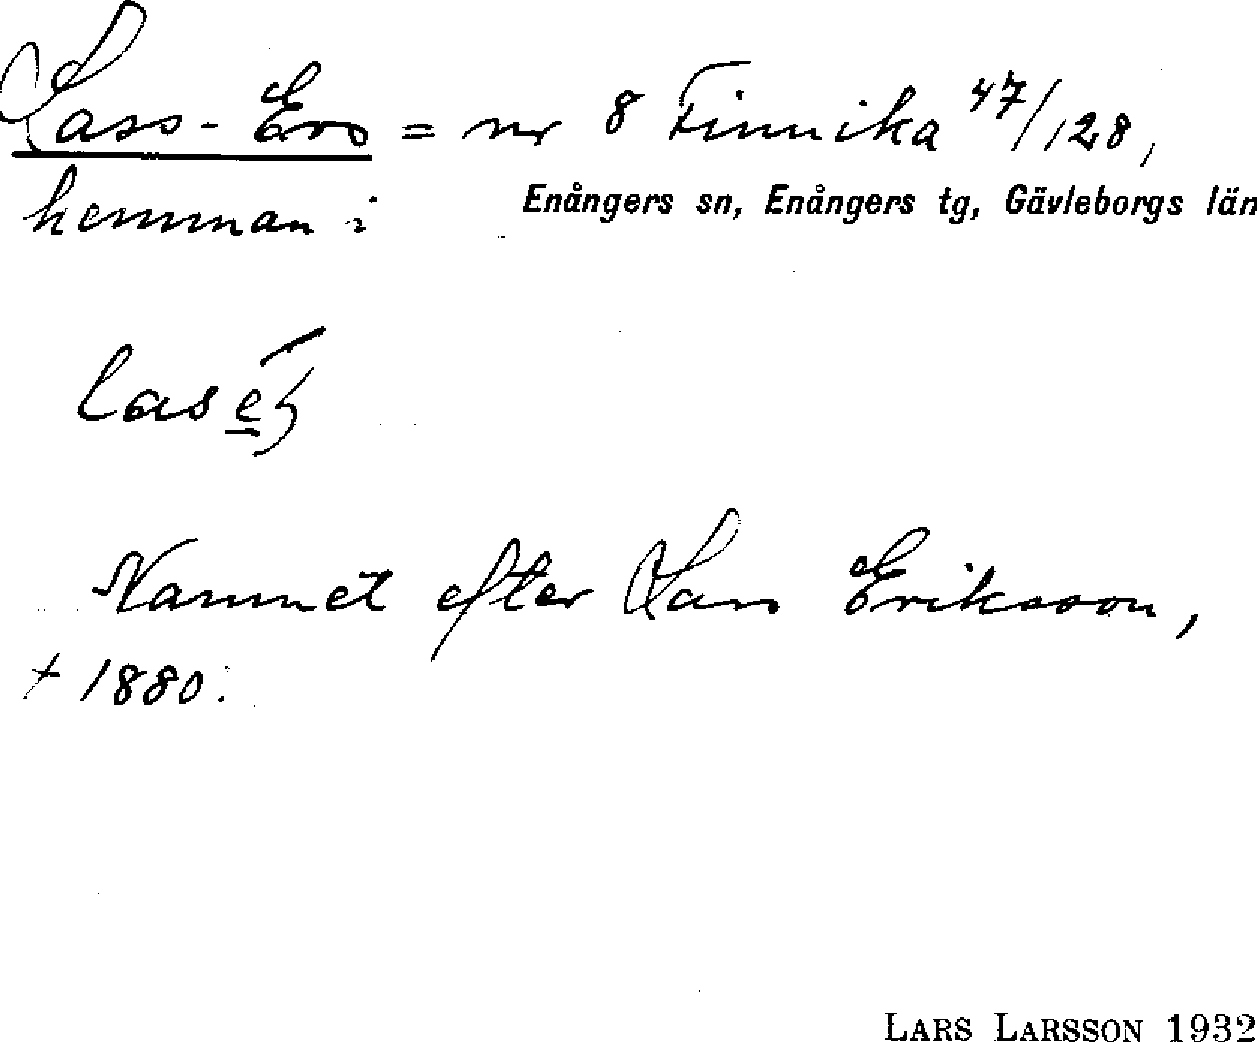 Lass-Ers = nr 8 Finnika 47/128,
hemman i Enångers sn, Enångers tg, Gävleborgs län
Namnet efter Lars Eriksson,
† 1880.
LARS LARSSON 1932